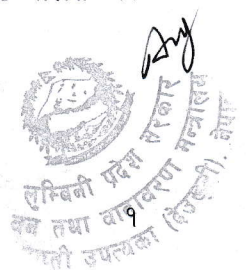 लुम्बिनी प्रदेश सरकार
वन तथा वातावरण मन्त्रालय
उपत्यका (देउखुरी), नेपाल
१